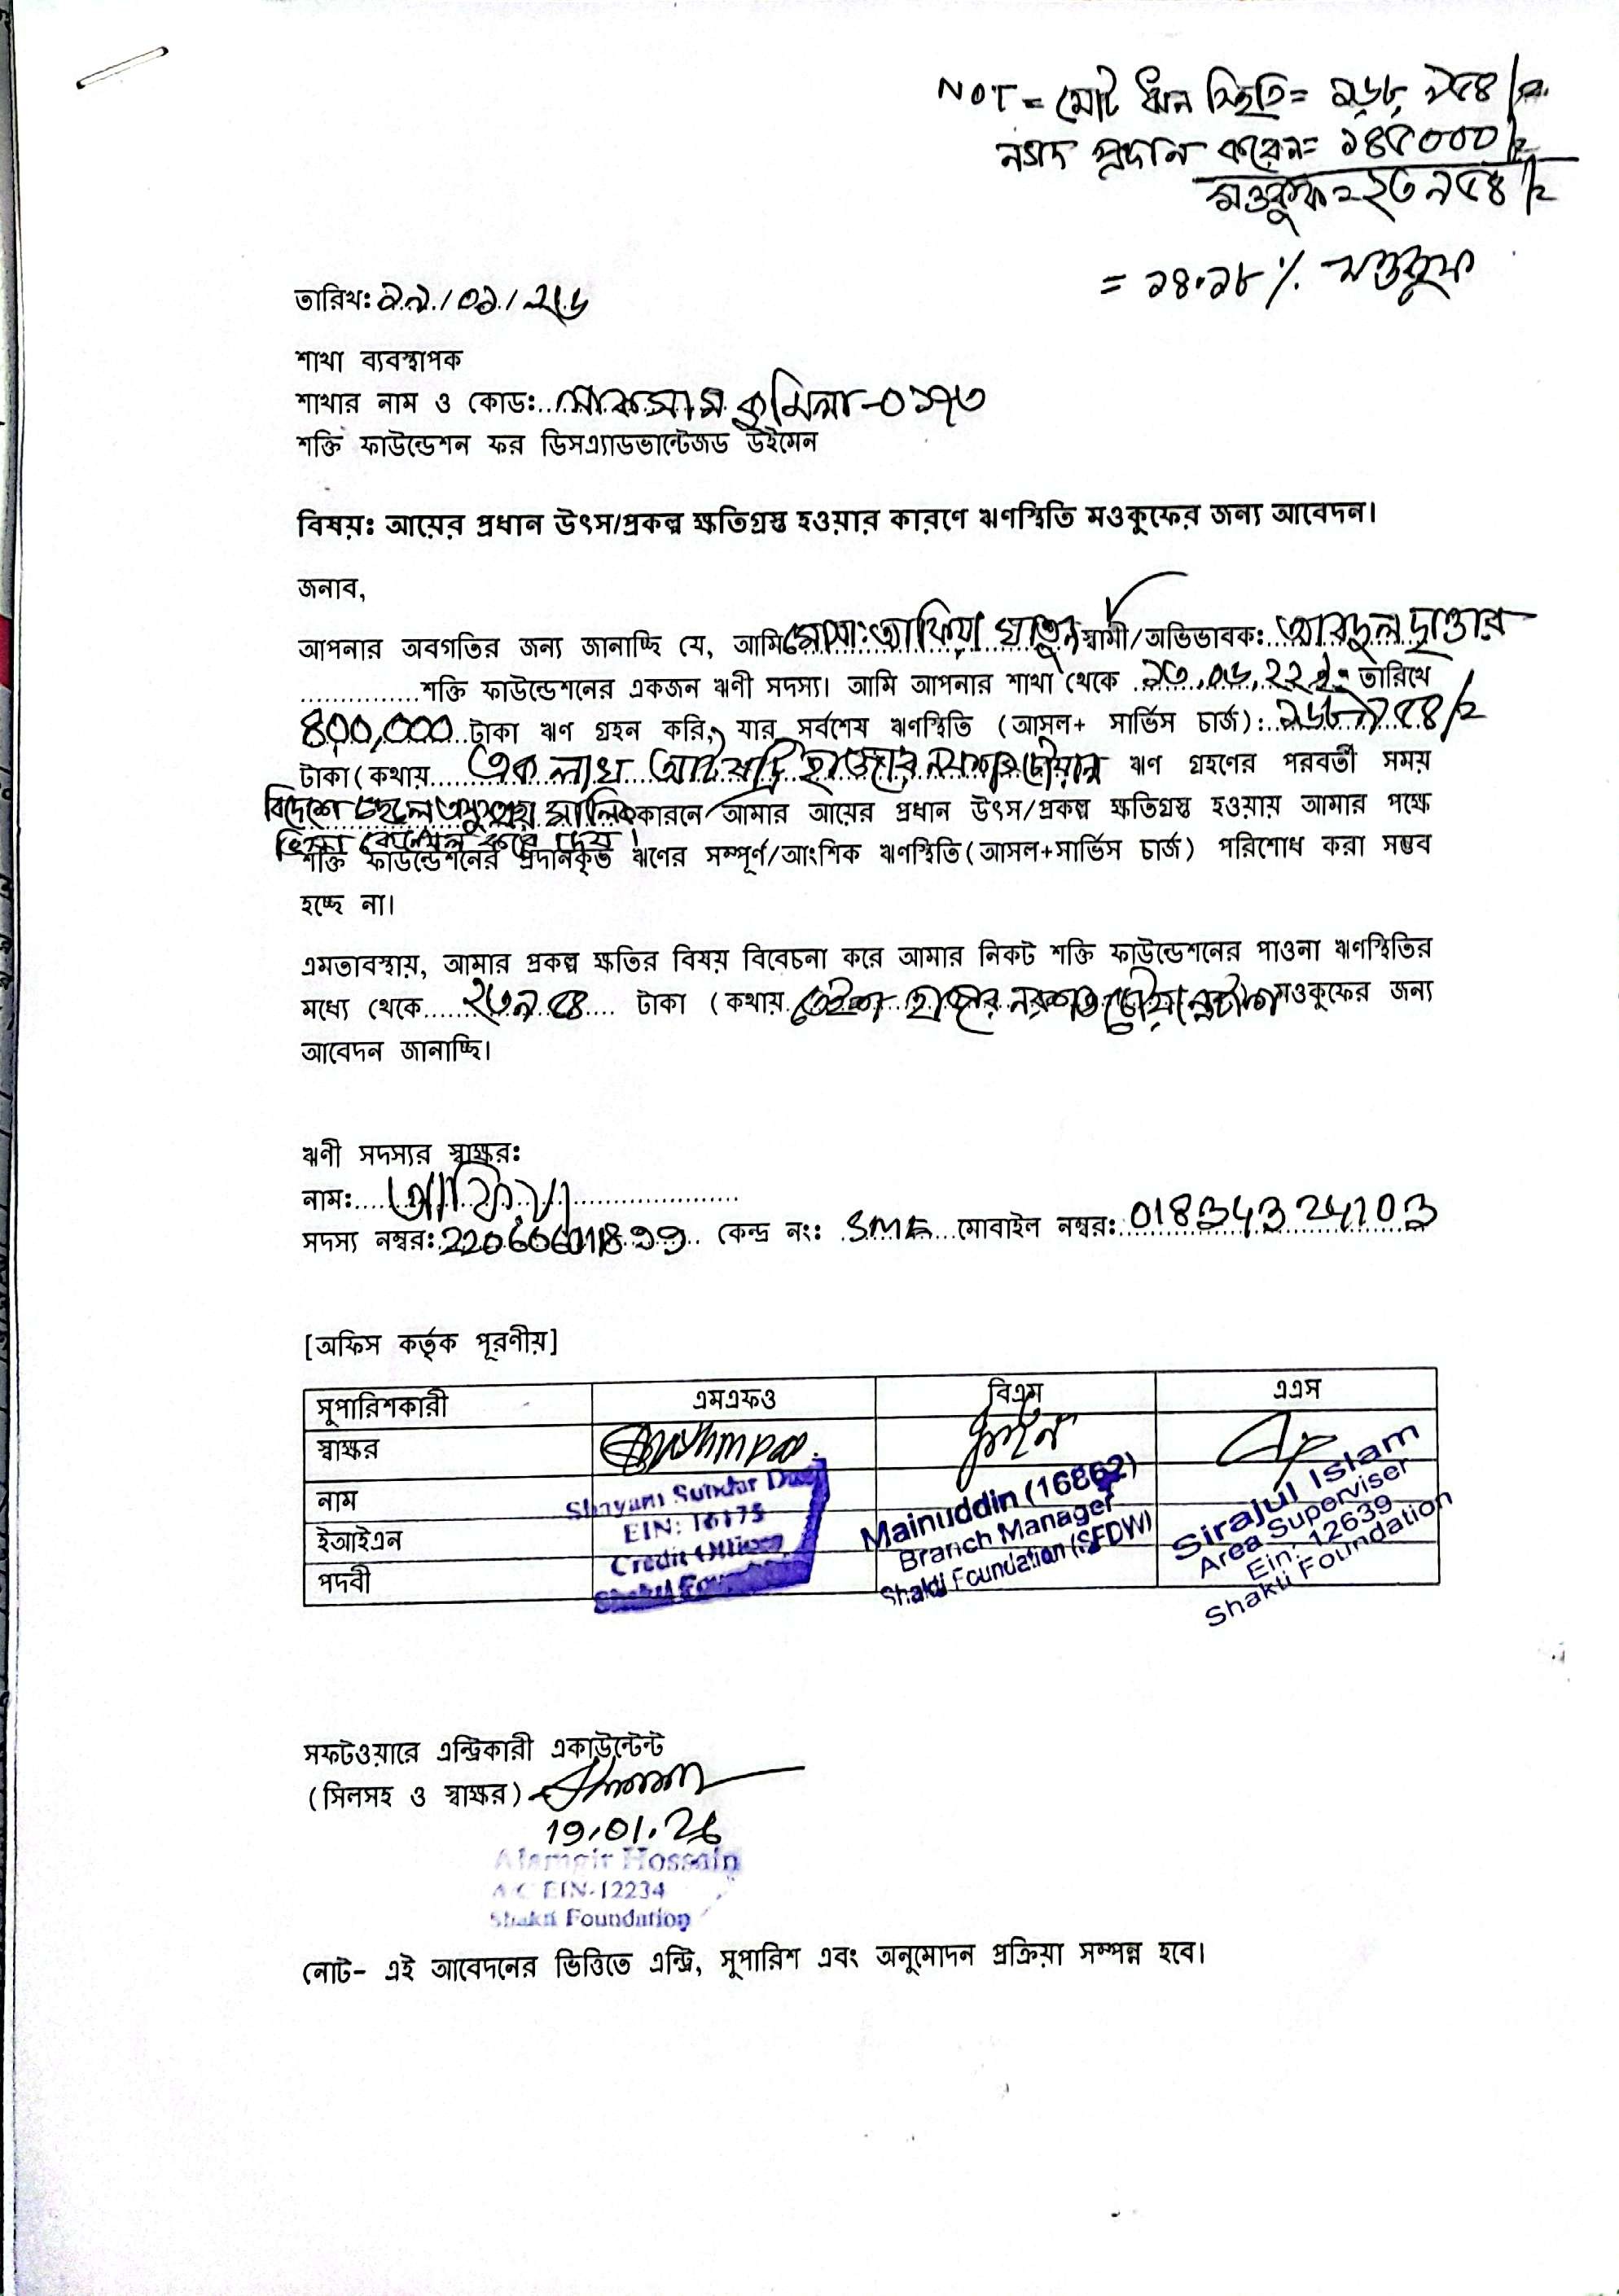 NOT = মোট ঋন স্থিতি = ১৬৮,৯৫৪/=
নগদ প্রদান করেন= ১৪৫০০০/=
মওকুফ = ২৩৯৫৪/=
= ১৪.১৮ % মওকুফ
তারিখঃ ১৯/০১/২৬
শাখা ব্যবস্থাপক
শাখার নাম ও কোডঃ লাকসাম কুমিল্লা-০১৭৩
শক্তি ফাউন্ডেশন ফর ডিসএ্যাডভান্টেজড উইমেন
বিষয়ঃ আয়ের প্রধান উৎস/প্রকল্প ক্ষতিগ্রস্ত হওয়ার কারণে ঋণস্থিতি মওকুফের জন্য আবেদন।
জনাব,
আপনার অবগতির জন্য জানাচ্ছি যে, আমি মোসাঃ আফিয়া খাতুন স্বামী/অভিভাবকঃ আবদুল ছাত্তার
শক্তি ফাউন্ডেশনের একজন ঋণী সদস্য। আমি আপনার শাখা থেকে ১৩.০৬.২২ইং তারিখে
৪০০,০০০ টাকা ঋণ গ্রহন করি, যার সর্বশেষ ঋণস্থিতি (আসল+ সার্ভিস চার্জ): ১৬৮৯৫৪/=
টাকা (কথায় এক লাখ আটষট্টি হাজার নয়শত চৌয়ান্ন ঋণ গ্রহণের পরবর্তী সময়
বিদেশে ছেলে অসুস্থ হয় মালিক কারনে আমার আয়ের প্রধান উৎস/প্রকল্প ক্ষতিগ্রস্ত হওয়ায় আমার পক্ষে
ভিসা কেন্সেল করে দেয়।
শক্তি ফাউন্ডেশনের প্রদানকৃত ঋণের সম্পূর্ণ/আংশিক ঋণস্থিতি (আসল+সার্ভিস চার্জ) পরিশোধ করা সম্ভব
হচ্ছে না।
এমতাবস্থায়, আমার প্রকল্প ক্ষতির বিষয় বিবেচনা করে আমার নিকট শক্তি ফাউন্ডেশনের পাওনা ঋণস্থিতির
মধ্যে থেকে ২৩৯৫৪ টাকা (কথায় তেইশ হাজার নয়শত চৌয়ান্ন টাকা মওকুফের জন্য
আবেদন জানাচ্ছি।
ঋণী সদস্যর স্বাক্ষর:
নাম: আফিয়া
সদস্য নম্বর: কেন্দ্র নং: SME মোবাইল নম্বর: 01834324103
[অফিস কর্তৃক পূরণীয়]
সুপারিশকারী এমএফও বিএম এএস
স্বাক্ষর
নাম Shayam Sundar Das Mainuddin (16862) Sirajul Islam
ইআইএন EIN: 16175 Branch Manager Area Superviser
পদবী Credit Officer Shakti Foundation (SFDW) Ein: 12639
Shakti Foundation
সফটওয়ারে এন্ট্রিকারী একাউন্টেন্ট
(সিলসহ ও স্বাক্ষর)
19.01.26
Alamgir Hossain
A/C EIN-12234
Shakti Foundation
নোট- এই আবেদনের ভিত্তিতে এন্ট্রি, সুপারিশ এবং অনুমোদন প্রক্রিয়া সম্পন্ন হবে।